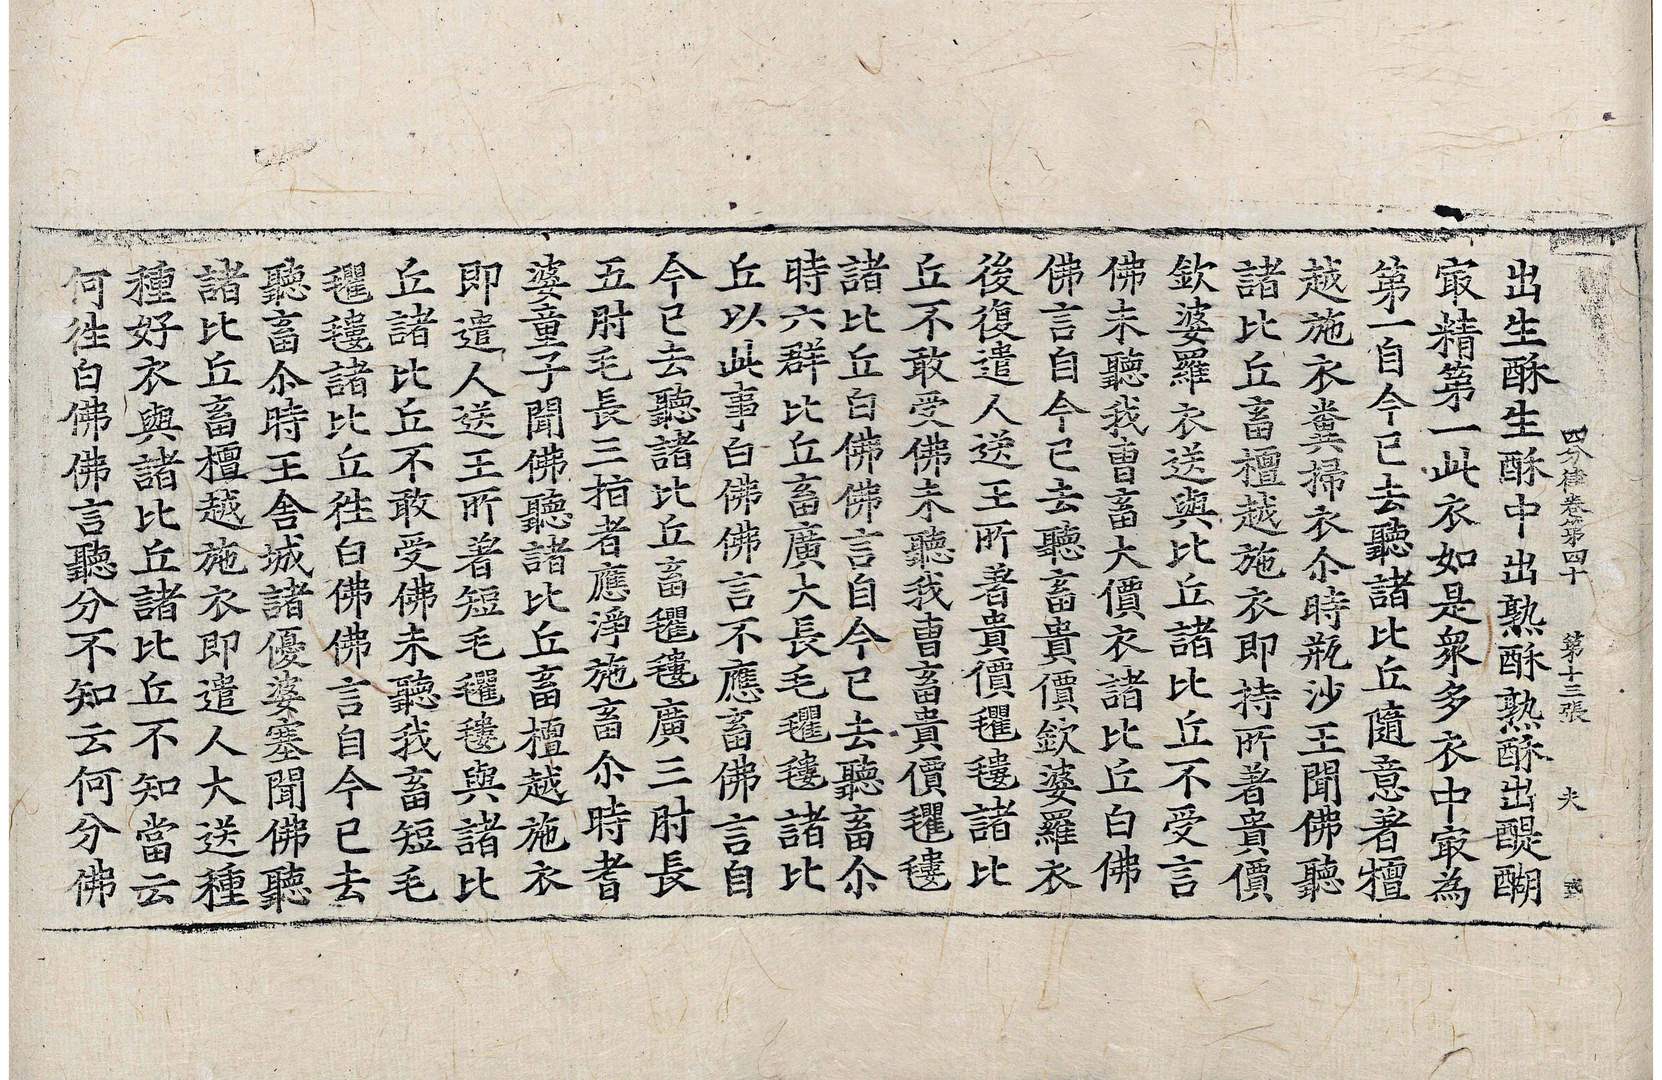 四分律卷第四十 第十三張 夫
出生酥生酥中出熟酥熟酥出醍醐
㝡精第一此衣如是衆多衣中㝡為
第一自今已去聽諸比丘隨意著檀
越施衣糞掃衣尒時瓶沙王聞佛聽
諸比丘畜檀越施衣即持所著貴價
欽婆羅衣送與比丘諸比丘不受言
佛未聽我曹畜大價衣諸比丘白佛
佛言自今已去聽畜貴價欽婆羅衣
後復遣人送王所著貴價氍㲣諸比
丘不敢受佛未聽我曹畜貴價氍㲣
諸比丘白佛佛言自今已去聽畜尒
時六群比丘畜廣大長毛氍㲣諸比
丘以此事白佛佛言不應畜佛言自
今已去聽諸比丘畜氍㲣廣三肘長
五肘毛長三指者應淨施畜尒時耆
婆童子聞佛聽諸比丘畜檀越施衣
即遣人送王所著短毛氍㲣與諸比
丘諸比丘不敢受佛未聽我畜短毛
氍㲣諸比丘徃白佛佛言自今已去
聽畜尒時王舍城諸優婆塞聞佛聽
諸比丘畜檀越施衣即遣人大送種
種好衣與諸比丘諸比丘不知當云
何徃白佛佛言聽分不知云何分佛